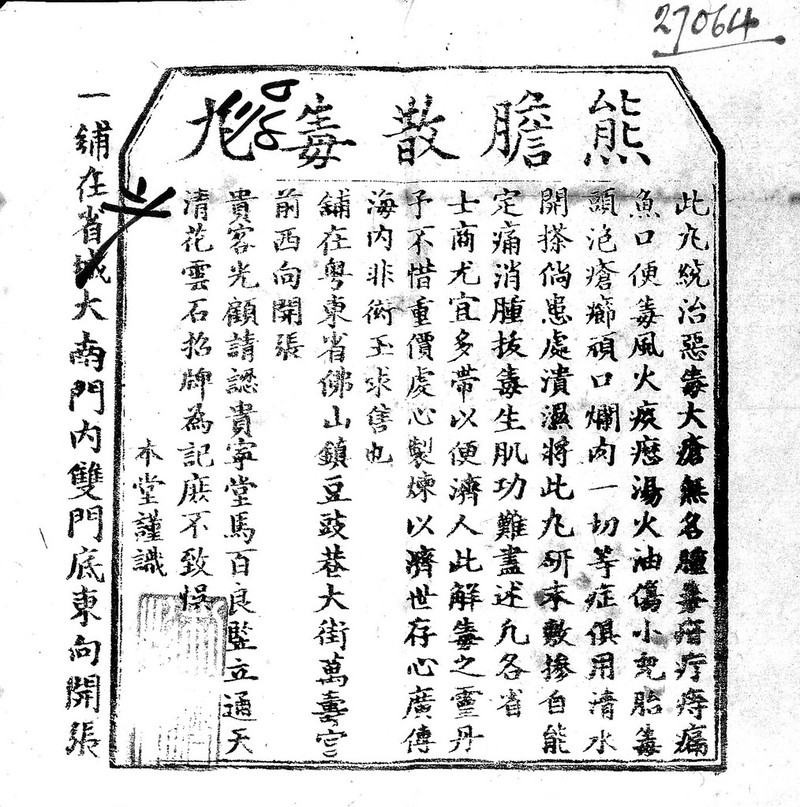 27064
熊膽散毒丸
此丸統治惡毒大瘡無名腫毒疳疔痔瘡
魚口便毒風火痰癧湯火油傷小兒胎毒
頭泡瘡癤頑口爛肉一切等症俱用清水
開搽倘患處潰濕將此丸研末敷摻自能
定痛消腫拔毒生肌功難盡述凡各省
士商尤宜多帶以便濟人此解毒之靈丹
予不惜重價處心製煉以濟世存心廣傳
海內非衒玉求售也
舖在粵東省佛山鎮豆豉巷大街萬壽宮
前西向開張
貴客光顧請認貴寧堂馬百良監立通天
清花雲石招牌為記庶不致悞
本堂謹識
一舖在省城大南門內雙門底東向開張